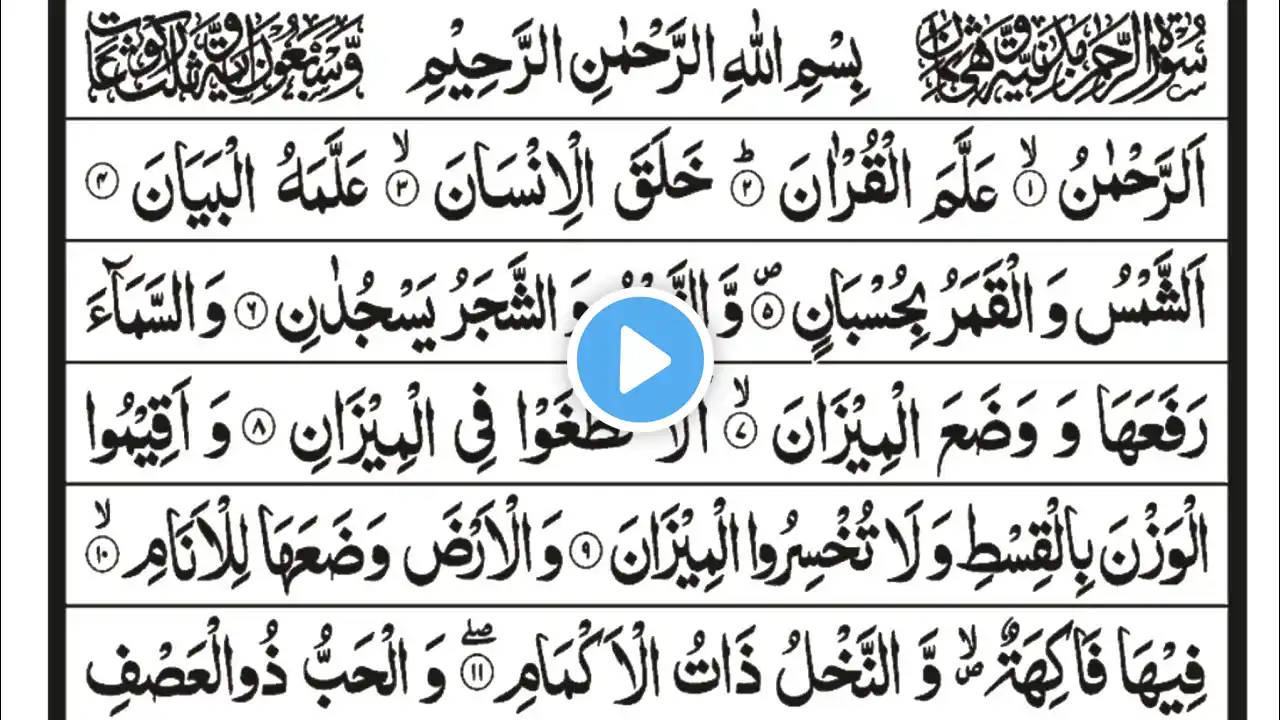 سُوْرَةُ الرَّحْمٰنِ مَدَنِيَّةٌ وَّهِيَ ثَمَانٌ بِسْمِ اللّٰهِ الرَّحْمٰنِ الرَّحِيْمِ وَّسَبْعُوْنَ اٰيَةً وَّثَلٰثُ رُكُوْعَاتٍ
اَلرَّحْمٰنُ ۙ۝۱ عَلَّمَ الْقُرْاٰنَ ؕ۝۲ خَلَقَ الْاِنْسَانَ ۙ۝۳ عَلَّمَهُ الْبَيَانَ ۝۴
اَلشَّمْسُ وَ الْقَمَرُ بِحُسْبَانٍ ۪۝۵ وَّ وَ الشَّجَرُ يَسْجُدٰنِ ۝۶ وَ السَّمَآءَ
رَفَعَهَا وَ وَضَعَ الْمِيْزَانَ ۙ۝۷ اَلَّا تَطْغَوْا فِی الْمِيْزَانِ ۝۸ وَ اَقِيْمُوا
الْوَزْنَ بِالْقِسْطِ وَ لَا تُخْسِرُوا الْمِيْزَانَ ۝۹ وَ الْاَرْضَ وَضَعَهَا لِلْاَنَامِ ۙ۝۱۰
فِيْهَا فَاكِهَةٌ ۪ۙ وَّ النَّخْلُ ذَاتُ الْاَكْمَامِ ۖ۝۱۱ وَ الْحَبُّ ذُوالْعَصْفِ